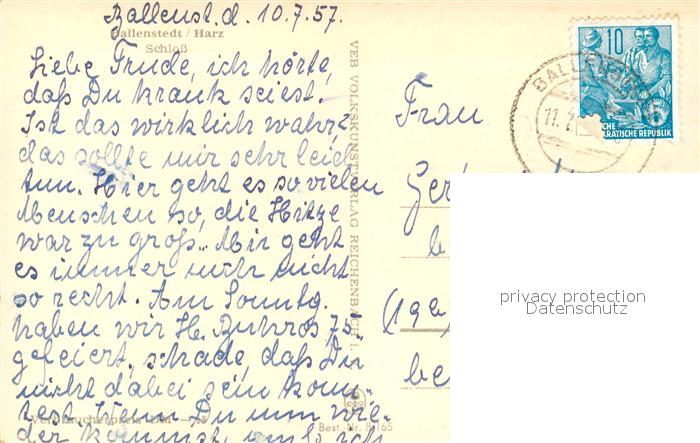 Ballenst. d. 10.7.57.
Ballenstedt / Harz
Schloß
Liebe Trude, ich hörte,
daß Du krank seiest.
Ist das wirklich wahr?
das sollte mir sehr leid
tun. Hier geht es so vielen
Menschen so, die Hitze
war zu groß. Mir geht
es immer noch nicht
so recht. Am Sonntg.
haben wir H. 75.
gefeiert, schade, daß Du
nicht dabei sein konn-
test. Wenn Du nun wie-
der kommst,
Verbraucherpreis DM —,15
Best.-Nr. B 165
VEB VOLKSKUNSTVERLAG REICHENBACH i.
Frau
Ger
b
(19a)
be
10
5
CHE
KRATISCHE REPUBLIK
BALLEN
11.7.
privacy protection
Datenschutz